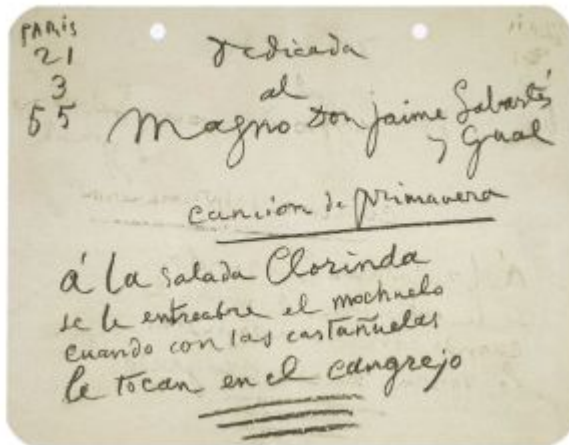 PARis
21
3
55
dedicada
al
Magno Don Jaime Sabartés
y Gual
canción de primavera
á la salada Clorinda
se le entreabre el mochuelo
cuando con las castañuelas
le tocan en el cangrejo